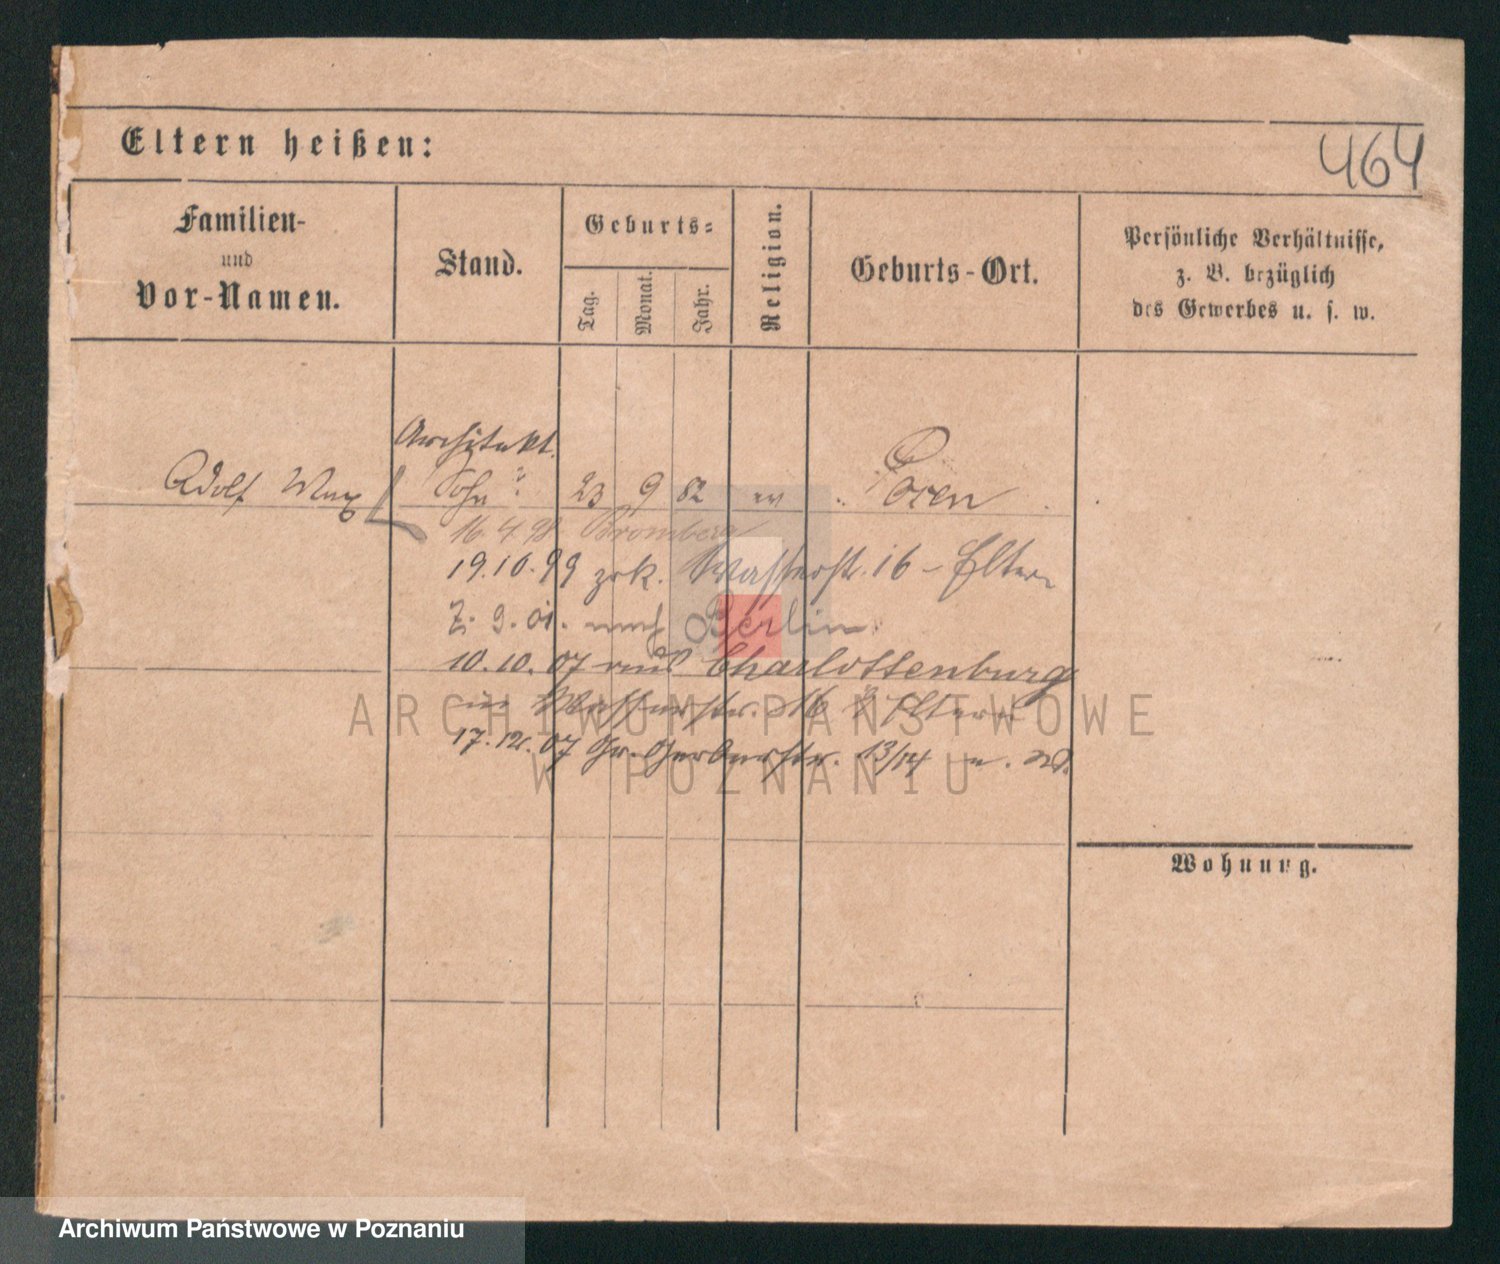 464
Eltern heißen:
Familien-
und
Vor-Namen.
Stand.
Geburts-
Tag.
Monat.
Jahr.
Religion.
Geburts-Ort.
Persönliche Verhältnisse,
z. B. bezüglich
des Gewerbes u. s. w.
Architekt.
Adolf Max Sohn 23 9 82 ev Posen
16.4.98 Bromberg
19.10.99 zrk. Wasserstr. 16 - Eltern
7. 9. 01. nach Berlin
10.10.07 aus Charlottenburg
in Wasserstr. 16 Eltern
17.12.07 Gr. Gerberstr. 13/14
Wohnung.
ARCHIWUM PAŃSTWOWE
W POZNANIU
Archiwum Państwowe w Poznaniu